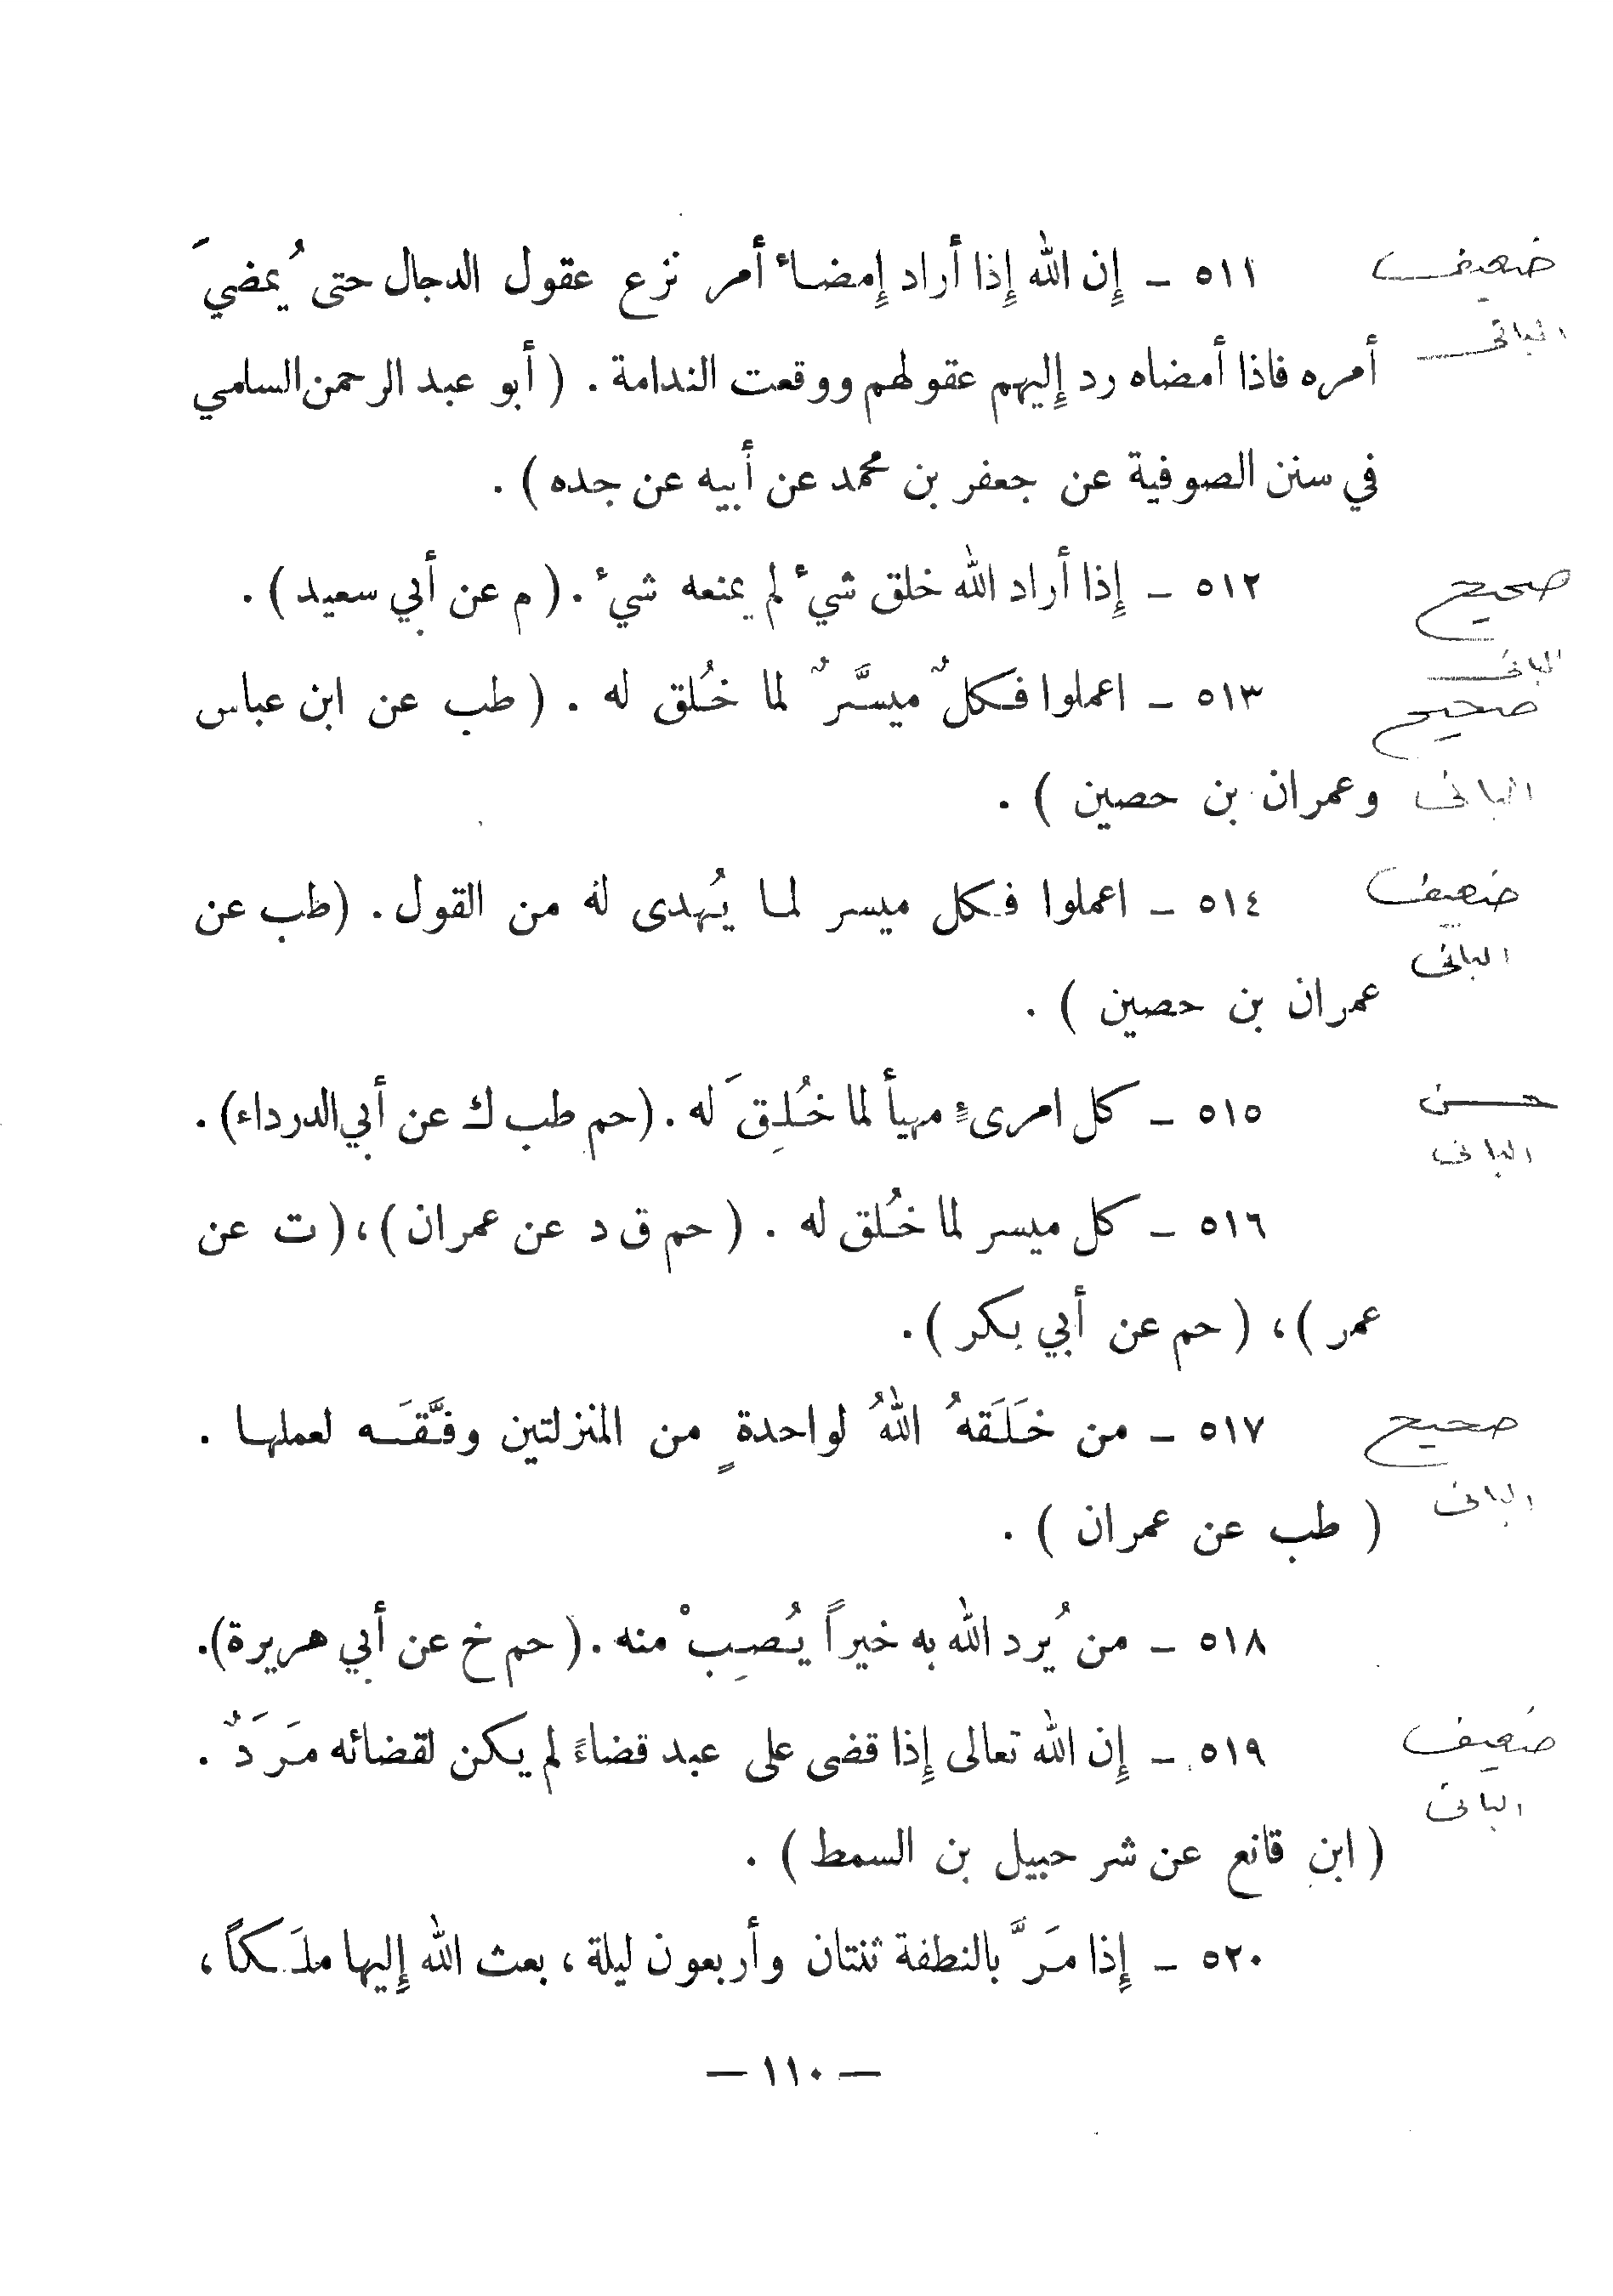 ضعيف ٥١١ – إِن الله إِذا أراد إِمضاءُ أمر نزع عقول الدجال حتى يُمضيَ
البانى أمره فاذا أمضاه رد إِليهم عقولهم ووقعت الندامة . ( أبو عبد الرحمن السامي
في سنن الصوفية عن جعفر بن محمد عن أبيه عن جده ) .
صحيح ٥١٢ – إِذا أراد الله خلق شيءٍ لم يمنعه شيء . ( م عن أبي سعيد ) .
البانى
صحيح ٥١٣ – اعملوا فكلٌ ميسَّرٌ لما خُلق له . ( طب عن ابن عباس
البانى وعمران بن حصين ) .
ضعيف ٥١٤ – اعملوا فكل ميسر لما يُهدى له من القول . (طب عن
البانى عمران بن حصين ) .
حسن ٥١٥ – كل امرىءٍ مهيأ لما خُلِقَ له . (حم طب ك عن أبي الدرداء) .
البانى
٥١٦ – كل ميسر لما خُلق له . ( حم ق د عن عمران ) ، ( ت عن
عمر ) ، ( حم عن أبي بكر ) .
صحيح ٥١٧ – من خَلَقَهُ اللهُ لواحدةٍ من المنزلتين وفَّقَه لعملها .
البانى ( طب عن عمران ) .
٥١٨ – من يُرد الله به خيراً يُصِبْ منه . ( حم خ عن أبي هريرة) .
ضعيف ٥١٩ – إِن الله تعالى إِذا قضى على عبد قضاءً لم يكن لقضائه مَرَدٌ .
البانى ( ابن قانع عن شرحبيل بن السمط ) .
٥٢٠ – إِذا مَرَّ بالنطفة ثنتان وأربعون ليلة ، بعث الله إِليها ملَكاً ،
— ١١٠ —